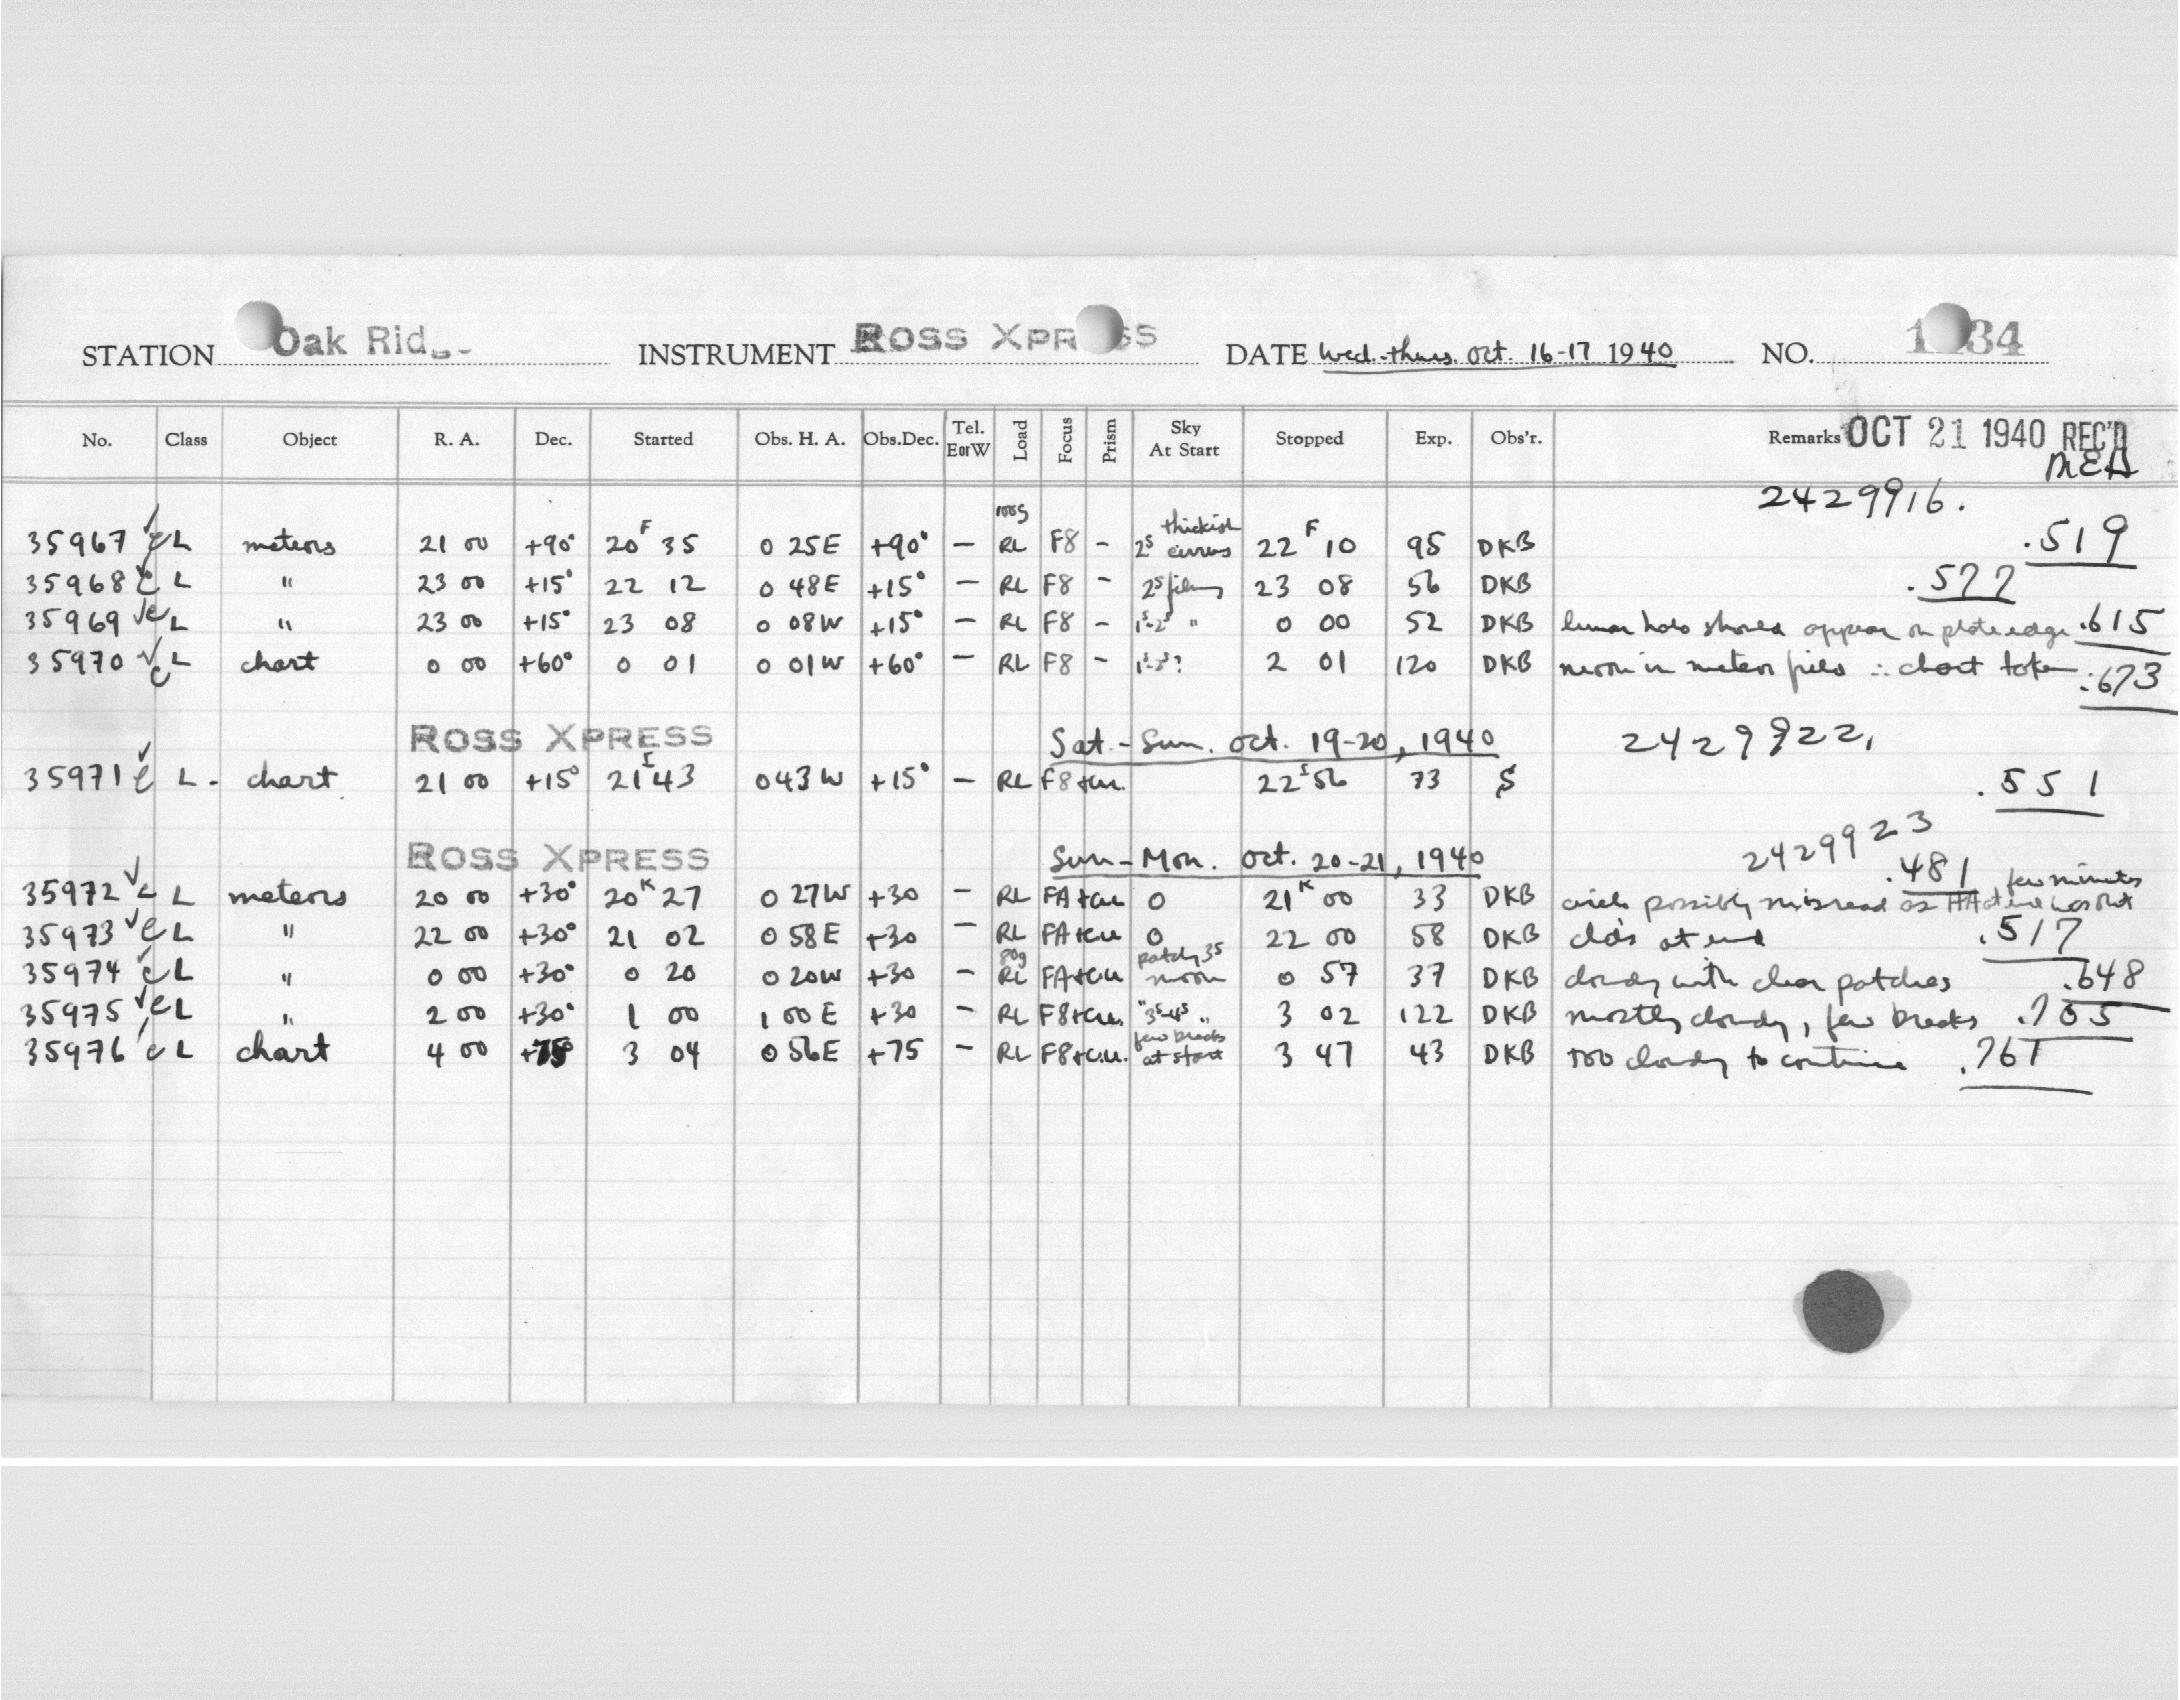 STATION Oak Rid INSTRUMENT ROSS XPR SS DATE Wed.-thurs. Oct. 16-17 1940 NO. 1 34
No. Class Object R. A. Dec. Started Obs. H. A. Obs.Dec. Tel. EorW Load Focus Prism Sky At Start Stopped Exp. Obs'r. Remarks OCT 21 1940 REC'D
MEA
2429916.
100g
35967 L meteors 21 00 +90° 20F 35 0 25E +90° — RL F8 - 2S thickish cirrus 22F 10 95 DKB .519
35968 L " 23 00 +15° 22 12 0 48E +15° — RL F8 - 2S 23 08 56 DKB .577
35969 L " 23 00 +15° 23 08 0 08W +15° — RL F8 - " 0 00 52 DKB lunar halo should appear on plate edge .615
35970 L chart 0 00 +60° 0 01 0 01W +60° — RL F8 - 2 01 120 DKB moon in meteor field ∴ chart taken .673
ROSS XPRESS Sat.-Sun. Oct. 19-20, 1940 2429922.
35971 L - chart 21 00 +15° 21 43 0 43W +15° — RL F8+cu. 22 56 73 S .551
ROSS XPRESS Sun-Mon. Oct. 20-21, 1940 2429923
.481
35972 L meteors 20 00 +30° 20K 27 0 27W +30 — RL FA+cu 0 21K 00 33 DKB circle possibly misread as few minutes
35973 L " 22 00 +30° 21 02 0 58E +30 — RL FA+cu 0 22 00 58 DKB clds at end .517
35974 L " 0 00 +30° 0 20 0 20W +30 — 80g RL FA+cu patchy 3S moon 0 57 37 DKB cloudy with clear patches .648
35975 L " 2 00 +30° 1 00 1 00E +30 — RL F8+cu. 3 02 122 DKB mostly cloudy, few breaks .705
35976 L chart 4 00 +75° 3 04 0 56E +75 — RL F8+cu. few breaks at start 3 47 43 DKB too cloudy to continue .761